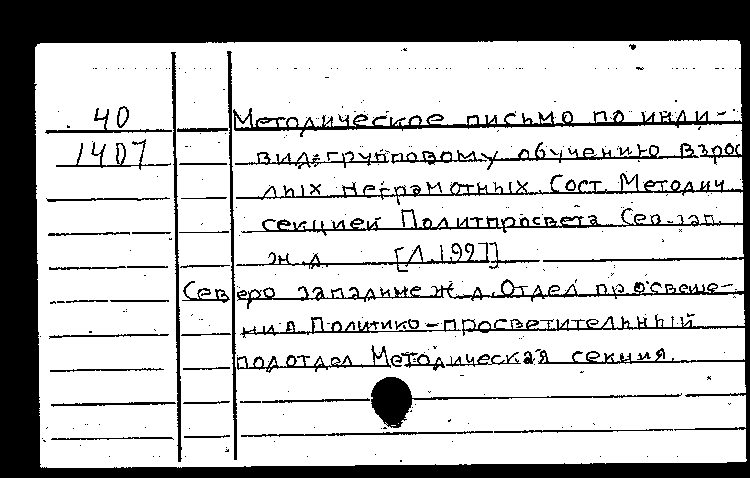 40
1407
Методическое письмо по инди-
вид-групповому обучению взрос
лых неграмотных. Сост. Методич.
секцией Политпросвета Сев-зап.
ж. д. [Л. 1927]
Северо западные ж. д. Отдел просвеще-
ния Политико-просветительный
подотдел Методическая секция.